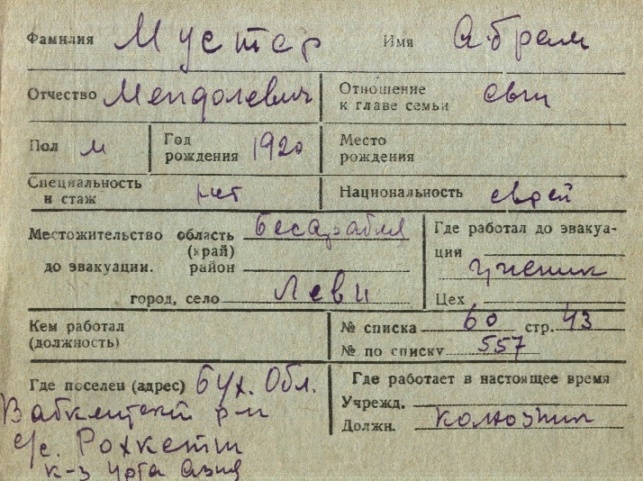 Фамилия Мустер Имя Абрам
Отчество Мендолевич Отношение к главе семьи сын
Пол м Год рождения 1920 Место рождения
Специальность и стаж нет Национальность еврей
Местожительство до эвакуации. область (край) Бесарабия
район
город, село Леви
Где работал до эвакуации ученик
Цех
Кем работал (должность)
№ списка 60 стр. 43
№ по списку 557
Где поселен (адрес) Бух. Обл.
Вабкентский р-н
с/с. Рохкетли
к-з Урта Азия
Где работает в настоящее время
Учрежд.
Должн. колхозник